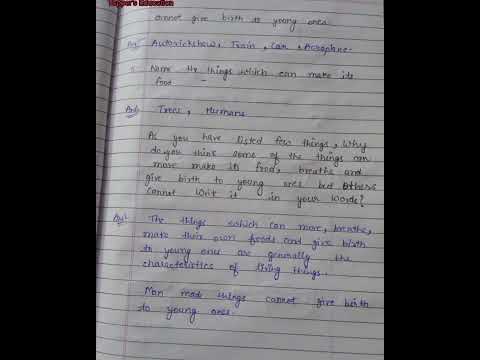 Topper's Education
cannot give birth to young ones.
Ans Autorickshaw, Train, Car, Aeroplane.
Name the things which can make its
food -
Ans Trees, Humans
As you have listed few things, Why
do you think some of the things can
move make its food, breaths and
give birth to young ones but others
cannot Writ it in your words?
Ans The things which can move, breathe,
make their own foods and give birth
to young ones are generally the
characteristics of living things.
Man made things cannot give birth
to young ones.